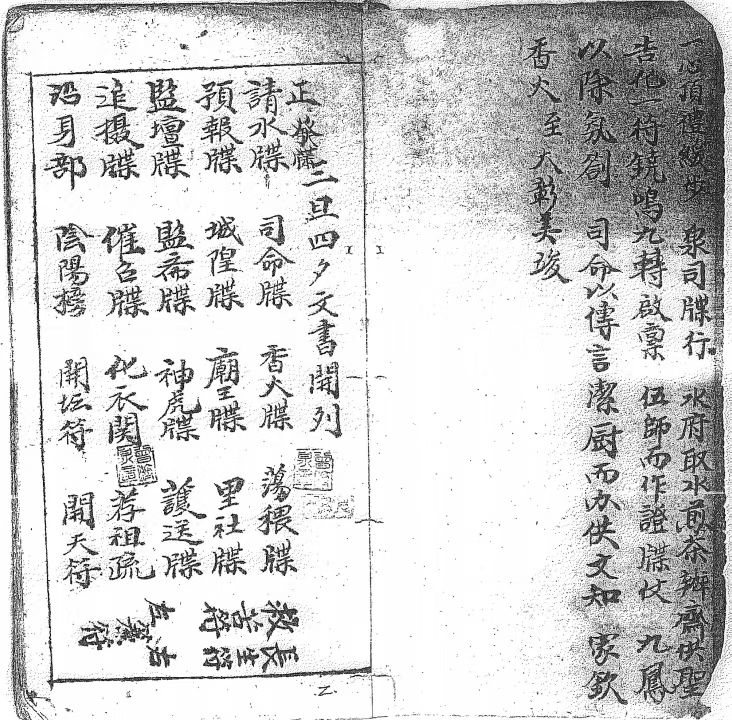 一心頂禮 衆司牒行 水府取水煎茶辦齋供聖
吉他一符鏡鳴九轉啟稟 伍師而作證牒仗 九鳳
以除氛 司命以傳言潔厨而办供文知 家欽
香火至大彰美
正發牒三旦四夕文書開列
請水牒 司命牒 香火牒 蕩穢牒
預報牒 城隍牒 廟王牒 里社牒
監壇牒 監斋牒 神虎牒 護送牒
追摄牒 催召牒 化衣関 荐祖疏
沿身部 陰陽榜 開坛符 開天符
救苦符
長生符